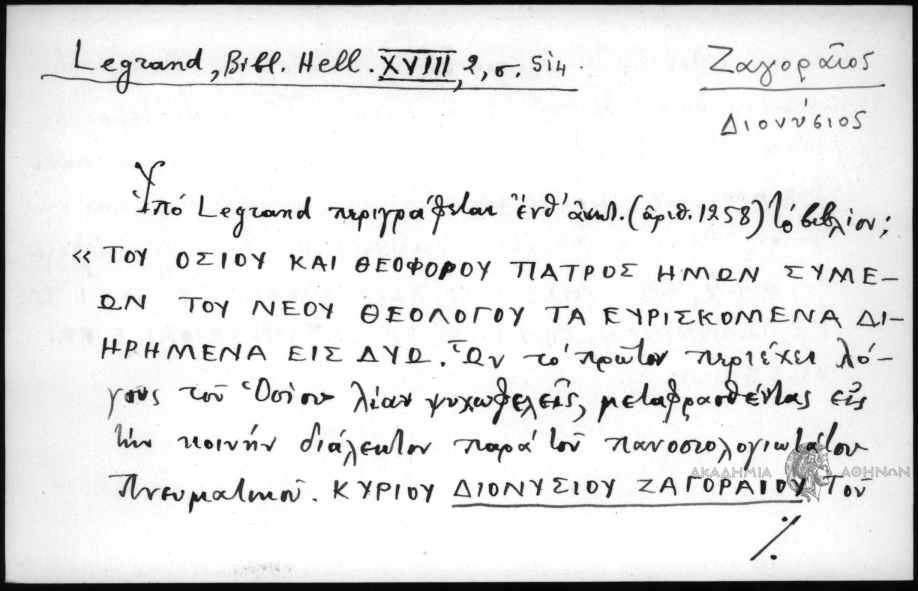 Legrand, Bibl. Hell. XVIII, 2, σ. 514.
Ζαγοραῖος
Διονύσιος
Ὑπό Legrand περιγράφεται ἐνθ' ἀνωτ. (ἀριθ. 1258) τό βιβλίον;
« ΤΟΥ ΟΣΙΟΥ ΚΑΙ ΘΕΟΦΟΡΟΥ ΠΑΤΡΟΣ ΗΜΩΝ ΣΥΜΕ-
ΩΝ ΤΟΥ ΝΕΟΥ ΘΕΟΛΟΓΟΥ ΤΑ ΕΥΡΙΣΚΟΜΕΝΑ ΔΙ-
ΗΡΗΜΕΝΑ ΕΙΣ ΔΥΩ. Ὧν τό πρῶτον περιέχει λό-
γους τοῦ Ὁσίου λίαν ψυχωφελεῖς, μεταφρασθέντας εἰς
τήν κοινήν διάλεκτον παρά τοῦ πανοσιολογιωτάτου
Πνευματικοῦ. ΚΥΡΙΟΥ ΔΙΟΝΥΣΙΟΥ ΖΑΓΟΡΑΙΟΥ τοῦ
ΑΚΑΔΗΜΙΑ ΑΘΗΝΩΝ
./.